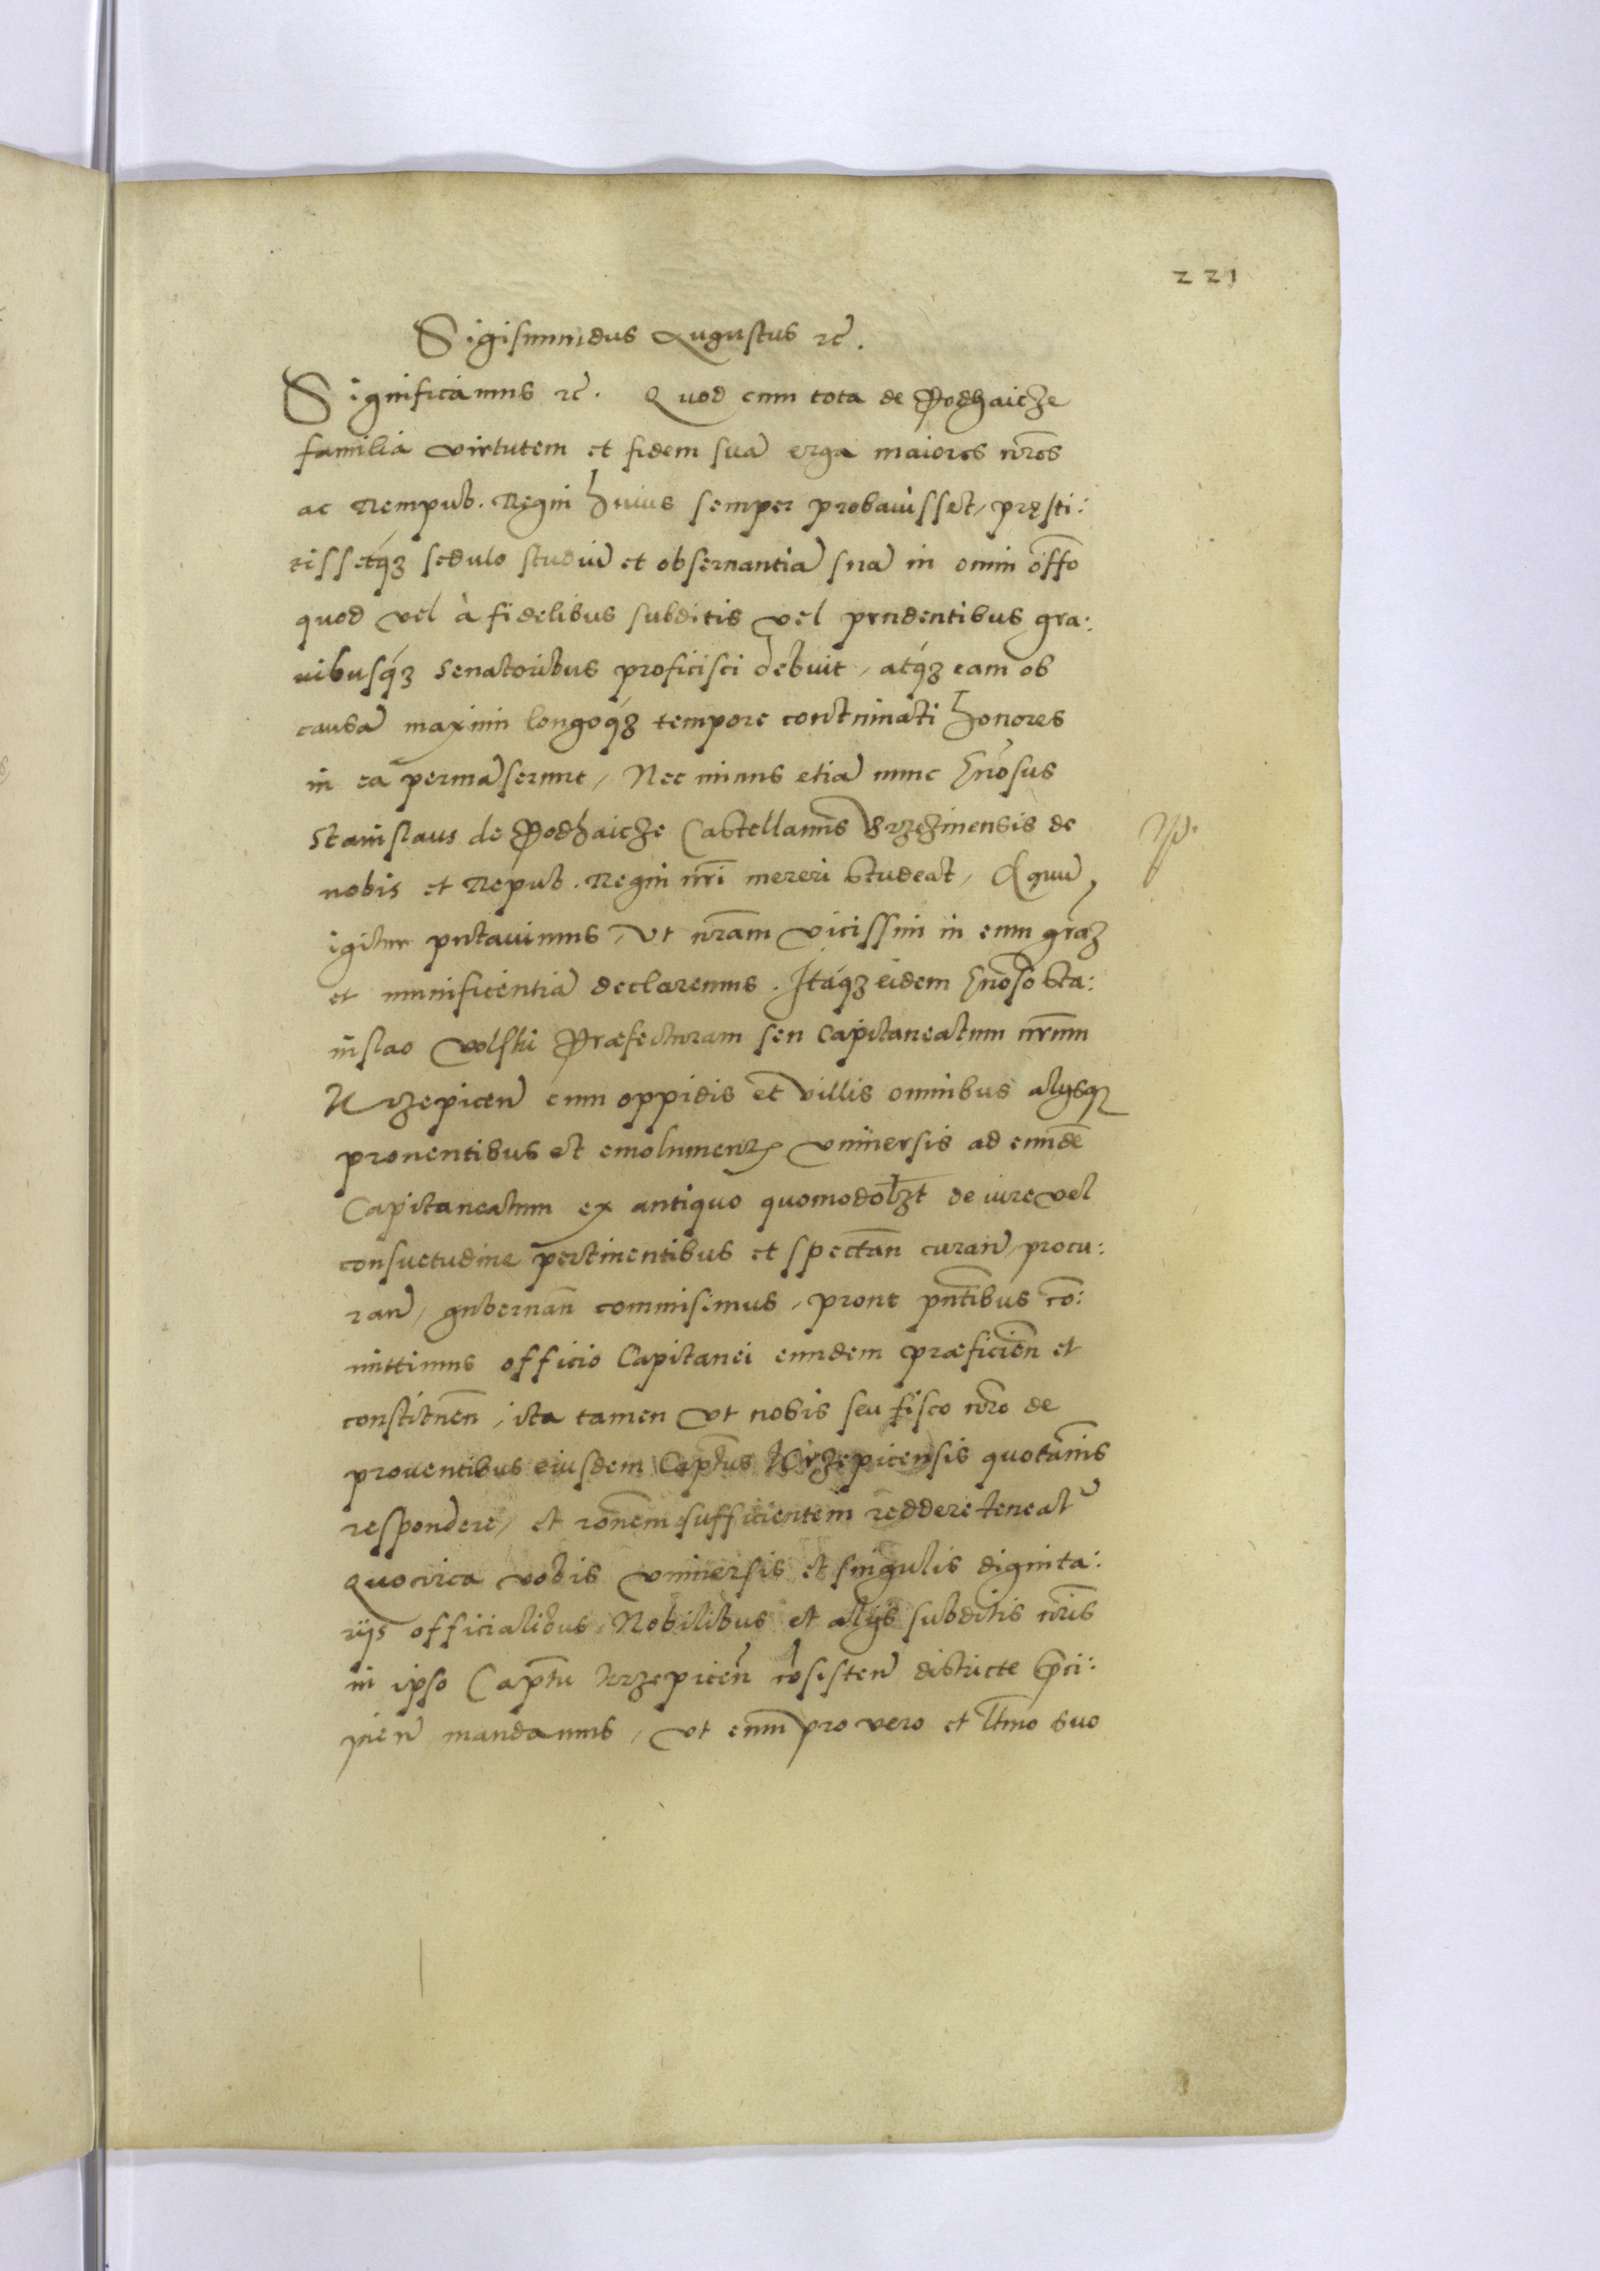 221
Sigismundus Augustus rc̃.
Significamus rc̃. Quod cum tota de Podhaicze
familia virtutem et fidem suã erga maiores nr̃os
ac Rempub. Regni huius semper probavisset, pręsti:
tissetq́ꝫ sedulo studiũ et observantiã suã in omni offo
quod vel à fidelibus subditis vel prudentibus gra:
vibusq́ꝫ senatoribus proficisci debuit, atq́ꝫ eam ob
causã maximi longoq́ꝫ tempore continuati honores
in ea permãserunt, Nec minus etiã nunc Gñosus
Stanislaus de Podhaicze Castellanus Brzezinensis de
nobis et Repub. Regni nr̃i mereri studeat, Æquũ
igitur putavimus, Ut nr̃am vicissim in eum gr̃aꝫ
et munificentiã declaremus. Itaq́ꝫ eidem Gñoso Sta:
nislao Præfecturam seu Capitaneatum nr̃um
Krzepiceñ cum oppidis et villis omnibus alijsqꝫ
proventibus et emolumentꝭ vniversis ad eundẽ
Capitaneatum ex antiquo quomodolꝫt de iure vel
consuetudine pertinentibus et spectañ curañ, procu:
rañ, gubernañ commisimus, prout pñtibus cõ:
mittimus officio Capitanei eundem præficieñ et
constitueñ, ita tamen vt nobis seu fisco nr̃o de
proventibus eiusdem Captus Krzepicensis quotannis
respondere, et rõnem sufficientem reddere teneat᷑
Quocirca vobis vniversis et singulis dignita:
rijs officialibus, Nobilibus et alijs subditis nr̃is
in ipso Captu Krzepiceñ cõsisteñ districte p̃ci:
pieñ mandamus, vt eum pro vero et lt̃imo suo